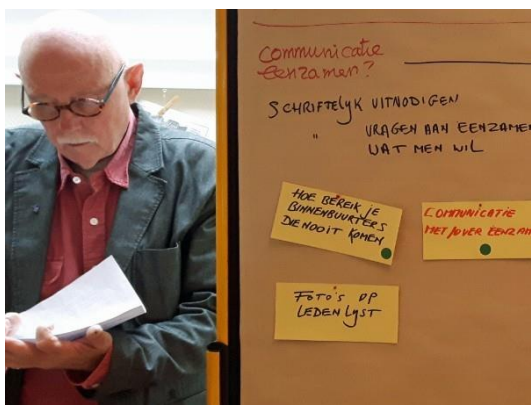 Communicatie
eenzamen?
SCHRIFTELYK UITNODIGEN
" VRAGEN AAN EENZAMEN
WAT MEN WIL
HOE BEREIK JE
BINNENBUURTERS
DIE NOOIT KOMEN
COMMUNICATIE
MET/OVER EENZAM
FOTO'S OP
LEDENLYST